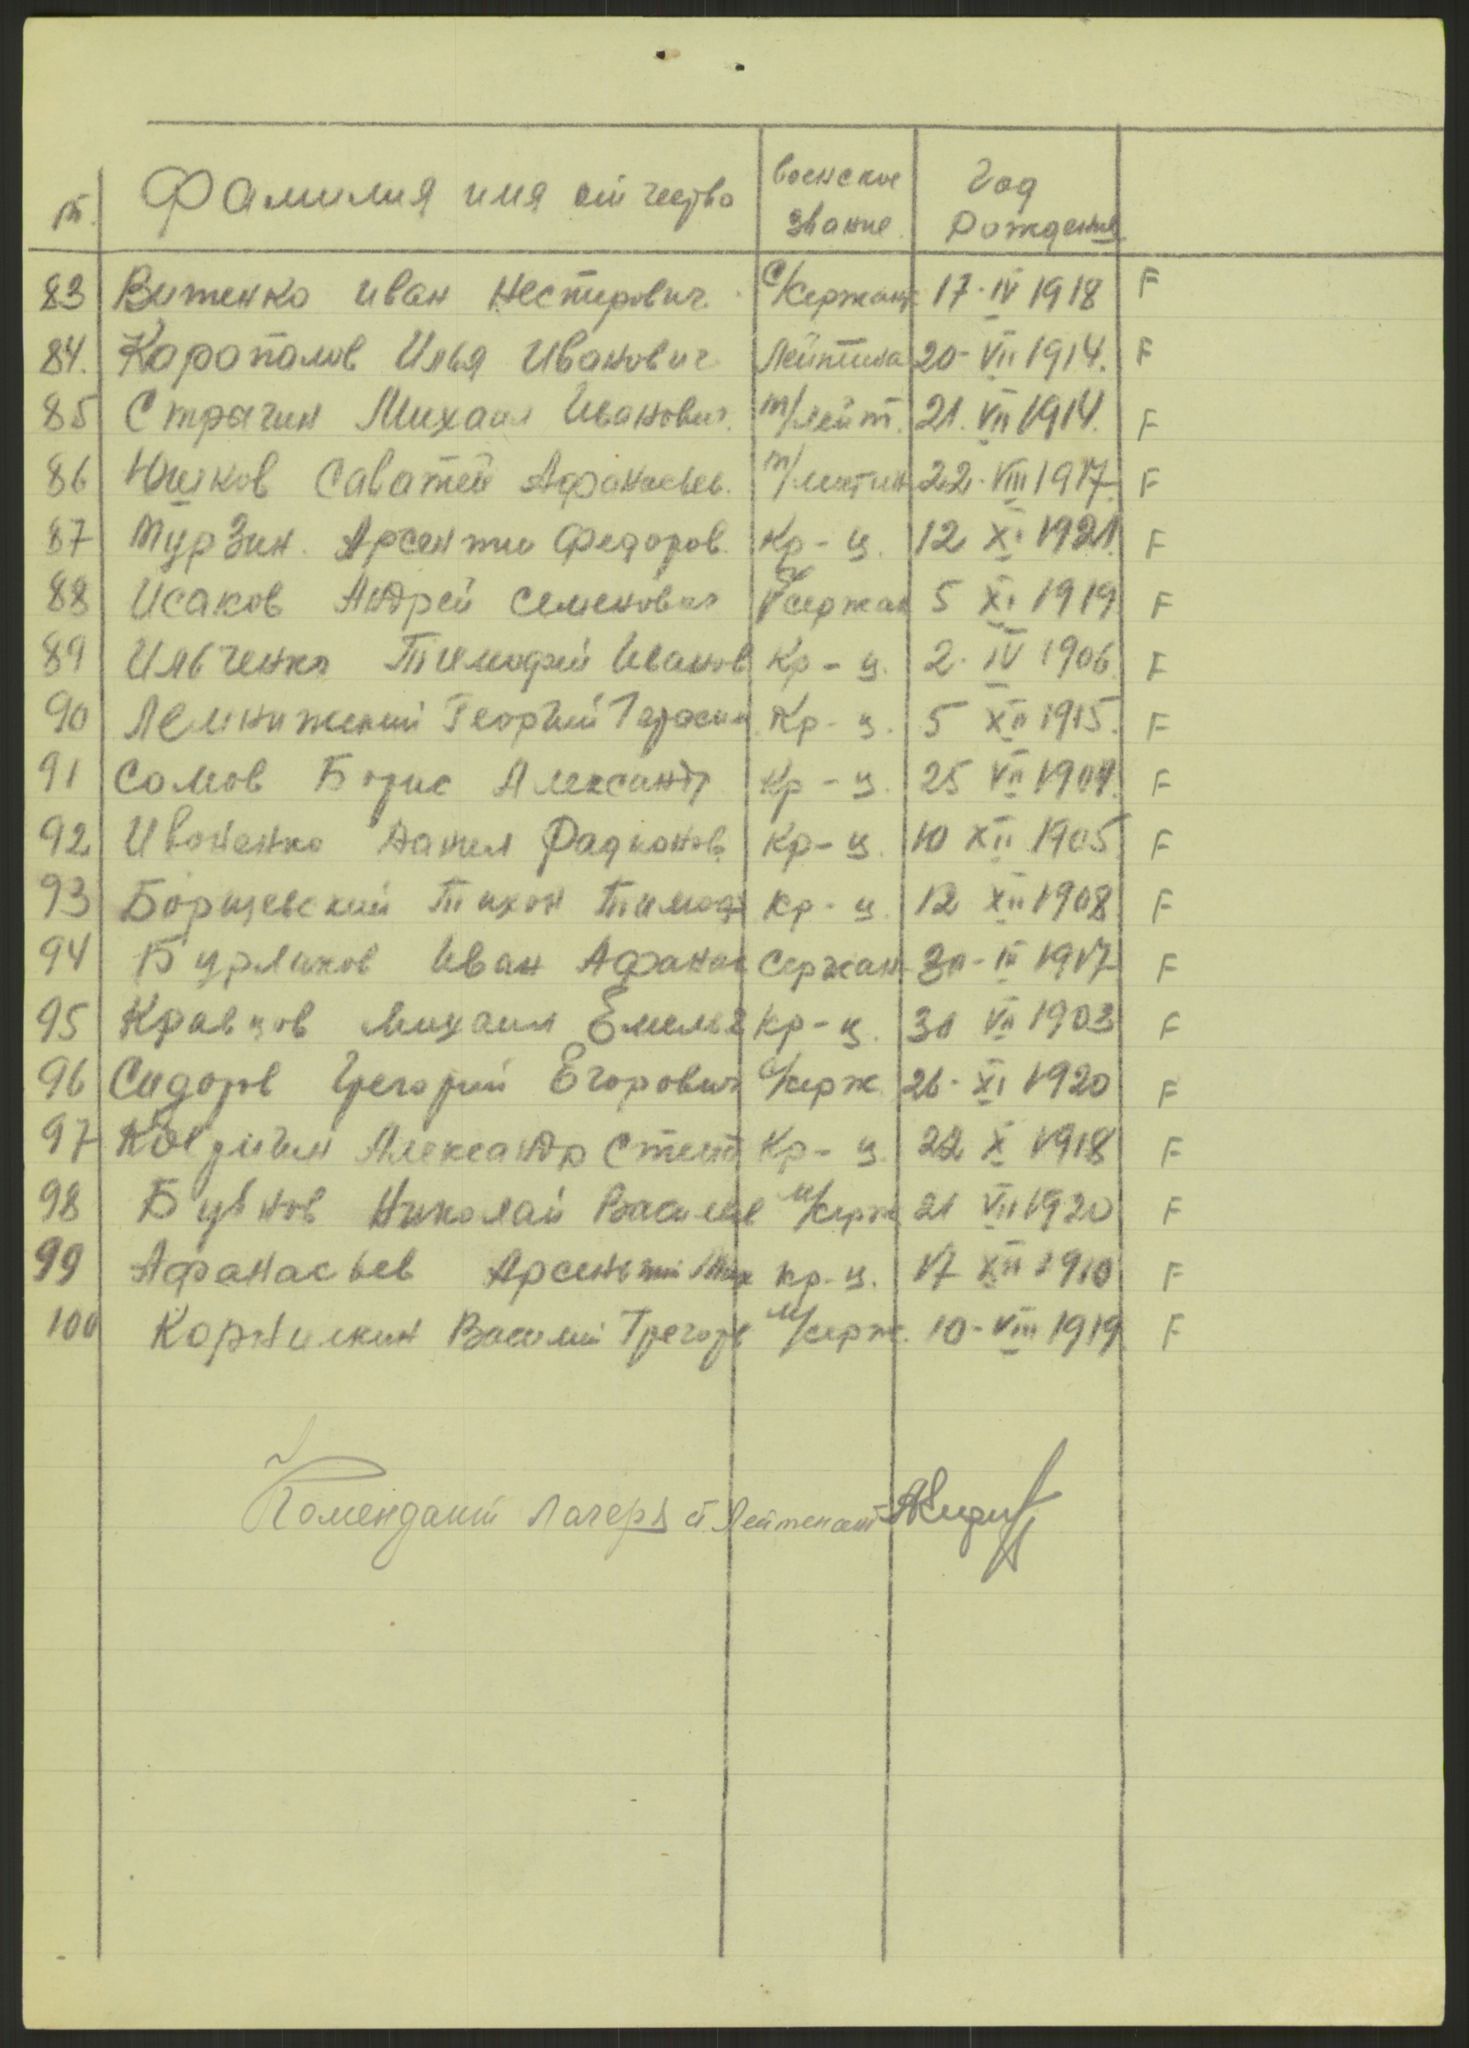 Фамилия имя отчество воинское звание Год Рождения
83 Витенко Иван Нестирович С/сержант 17-IV 1918 F
84. Каропалов Илья Иванович Лейтина 20-VII 1914. F
85 Страчин Михаил Иванович. т/лейт. 21.VII 1914. F
86 Саватей Афанасьев. т/ 22-VIII 1917 F
87 Мурзин. Арсенти Федоров. Кр-ц. 12 XI 1921. F
88 Исаков Андрей Семенович 5 XI 1919 F
89 Ильченко Тимофей Иванов Кр-ц. 2. IV 1906. F
90 Георгий Герасим. Кр-ц. 5 XII 1915. F
91 Сомов Борис Александр Кр-ц. 25 VII F
92 Ивоненко Данил Радионов. Кр-ц. 10 XII 1905. F
93 Борщевский Тихон Тимоф Кр-ц. 12 XII 1908. F
94 Бурликов Иван Афанас Сержан 1917 F
95 Кравцов Михаил Емель Кр-ц. 30 VII 1903 F
96 Сидоров Григорий Егорович С/серж 26-XI 1920 F
97 Александр Степ Кр-ц. 22 X 1918 F
98 Бубнов Николай Василев М/серж 21 VII 1920 F
99 Афанасьев Арсентий Мих Кр-ц. 17 XII 1910 F
100 Корнилкин Василий Грегорв М/серж. 10-VIII 1919 F
Комендант Лагеря ст. Лейтенант